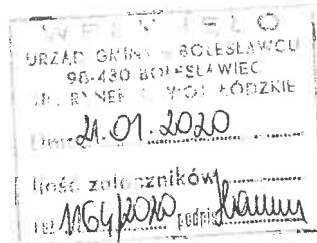 WPŁYNĘŁO
URZĄD GMINY W BOLESŁAWCU
98-430 BOLESŁAWIEC
UL. RYNEK 1, WOJ. ŁÓDZKIE
21.01.2020
Ilość załączników
1164/2020 podpis